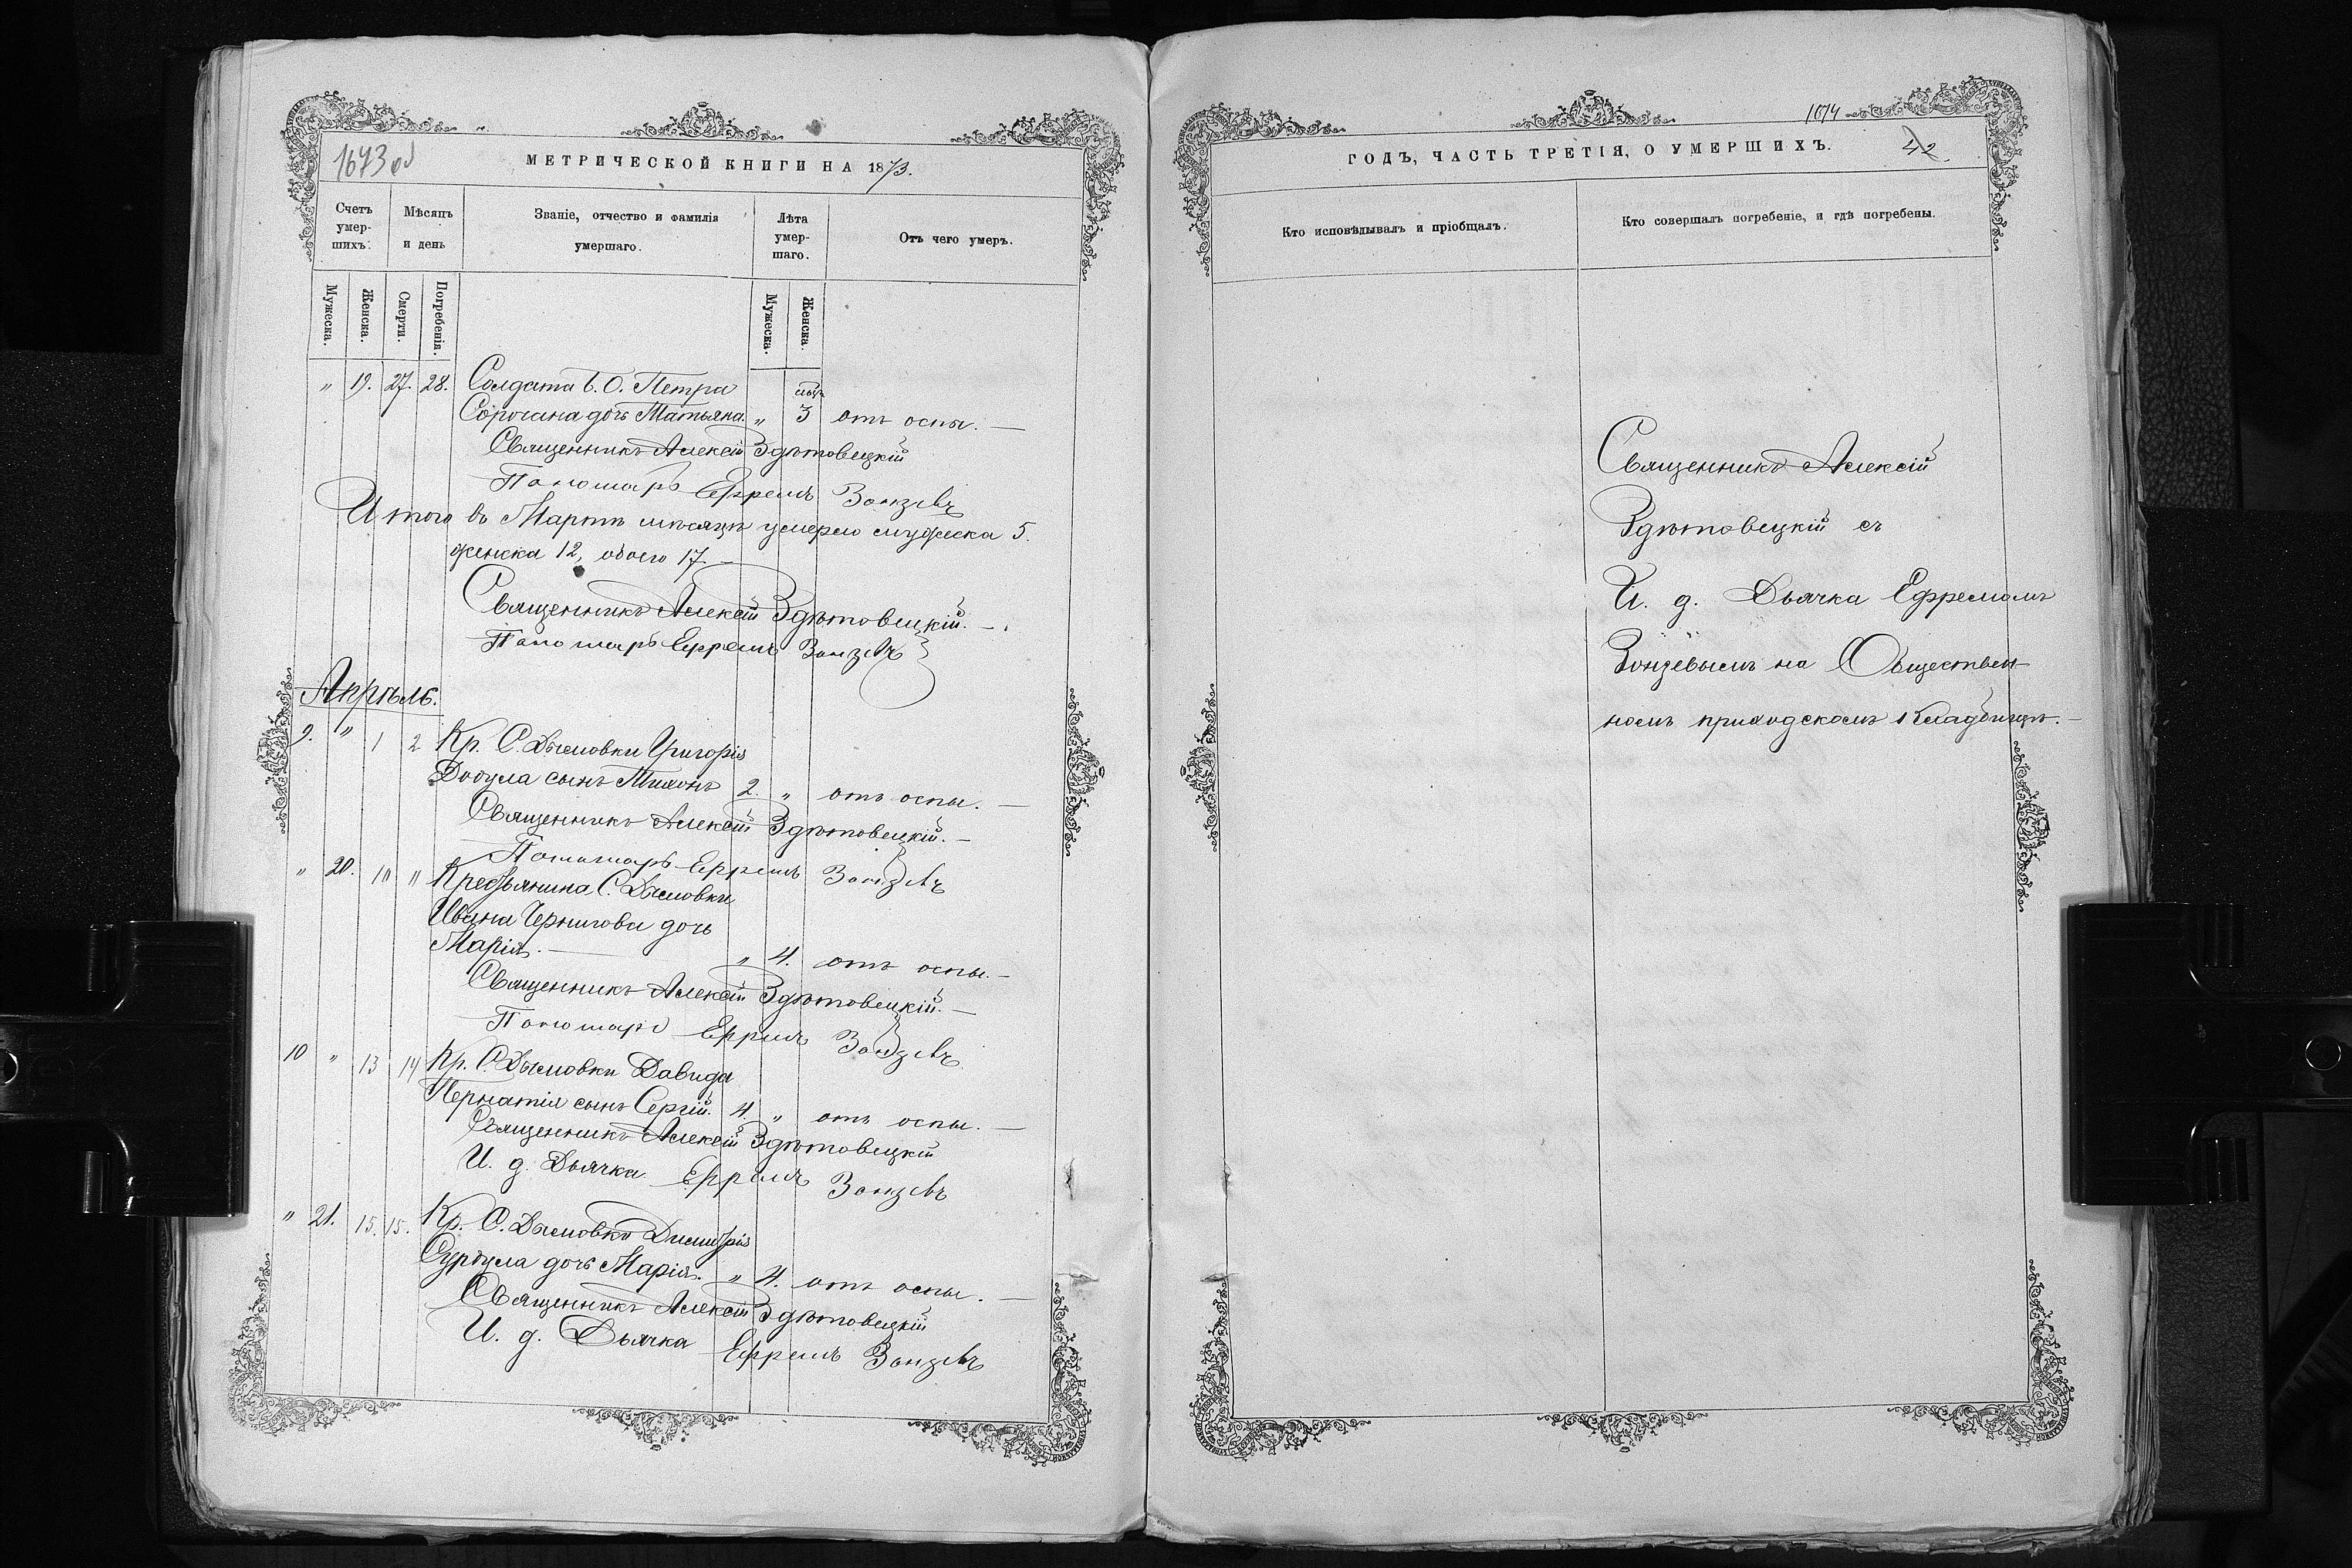 1673 об
МЕТРИЧЕСКОЙ КНИГИ НА 1873.
Счетъ умер-шихъ.
Мѣсяцъ и день
Званіе, отчество и фамилія умершаго.
Лѣта умер-шаго.
Отъ чего умеръ.
Мужеска.
Женска.
Смерти.
Погребенія.
Мужеска.
Женска.
" 19. 27. 28. Солдата Б. О. Петра
дочь Татьяна. " 3 отъ оспы. —
Священникъ Алексій Здѣтовецкій
Пономарь Ефремъ Зонзевъ
Итого въ Мартѣ мѣсяцѣ умерло мужеска 5.
женска 12, обоего 17. —
Священникъ Алексій Здѣтовецкій. —
Пономарь Ефремъ Зонзевъ
Апрѣль.
9. " 1 2 Кр. С. Дымовки Григорія
сынъ 2. " отъ оспы. —
Священникъ Алексій Здѣтовецкій. —
Пономарь Ефремъ Зонзевъ
" 20. 10 " Крестьянина С. Дымовки
Ивана Чернигова дочь
Марія. — " 4. отъ оспы. —
Священникъ Алексій Здѣтовецкій. —
Пономарь Ефремъ Зонзевъ
10 " 13 14 Кр. С. Дымовки Давида
сынъ Сергій. 4. " отъ оспы. —
Священникъ Алексій Здѣтовецкій
И. д. Дьячка Ефремъ Зонзевъ
" 21. 15. 15. Кр. С. Дымовки Димитрія
дочь Марія. " 4. отъ оспы. —
Священникъ Алексій Здѣтовецкій
И. д. Дьячка Ефремъ Зонзевъ
1674
ГОДЪ, ЧАСТЬ ТРЕТІЯ, О УМЕРШИХЪ.
42.
Кто исповѣдывалъ и пріобщалъ.
Кто совершалъ погребеніе, и гдѣ погребены.
Священникъ Алексій
Здѣтовецкій съ
И. д. Дьячка Ефремомъ
Зонзевымъ на Обществен-
номъ приходскомъ Кладбищѣ. —